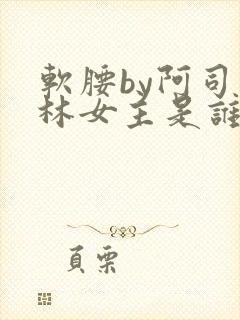 軟腰by阿司
林女主是誰
頁栗